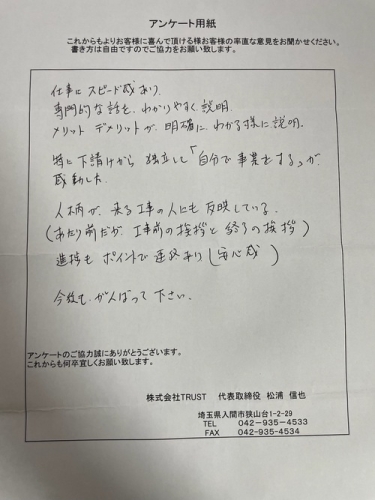 アンケート用紙
これからもよりお客様に喜んで頂ける様お客様の率直な意見をお聞かせください。
書き方は自由ですのでご協力をお願い致します。
仕事にスピード感あり
専門的な話を、わかりやすく説明.
メリット デメリットが、明確に、わかる様に説明.
特に下請けから 独立して「自分で事業をする」が
感動した.
人柄が、来る工事の人にも反映している.
(あたり前だが、工事前の挨拶と終りの挨拶)
進捗も ポイントで連絡あり(安心感)
今後も、がんばって下さい.
アンケートのご協力誠にありがとうございます。
これからも何卒宜しくお願い致します。
株式会社TRUST 代表取締役 松浦 信也
埼玉県入間市狭山台1-2-29
TEL 042-935-4533
FAX 042-935-4534